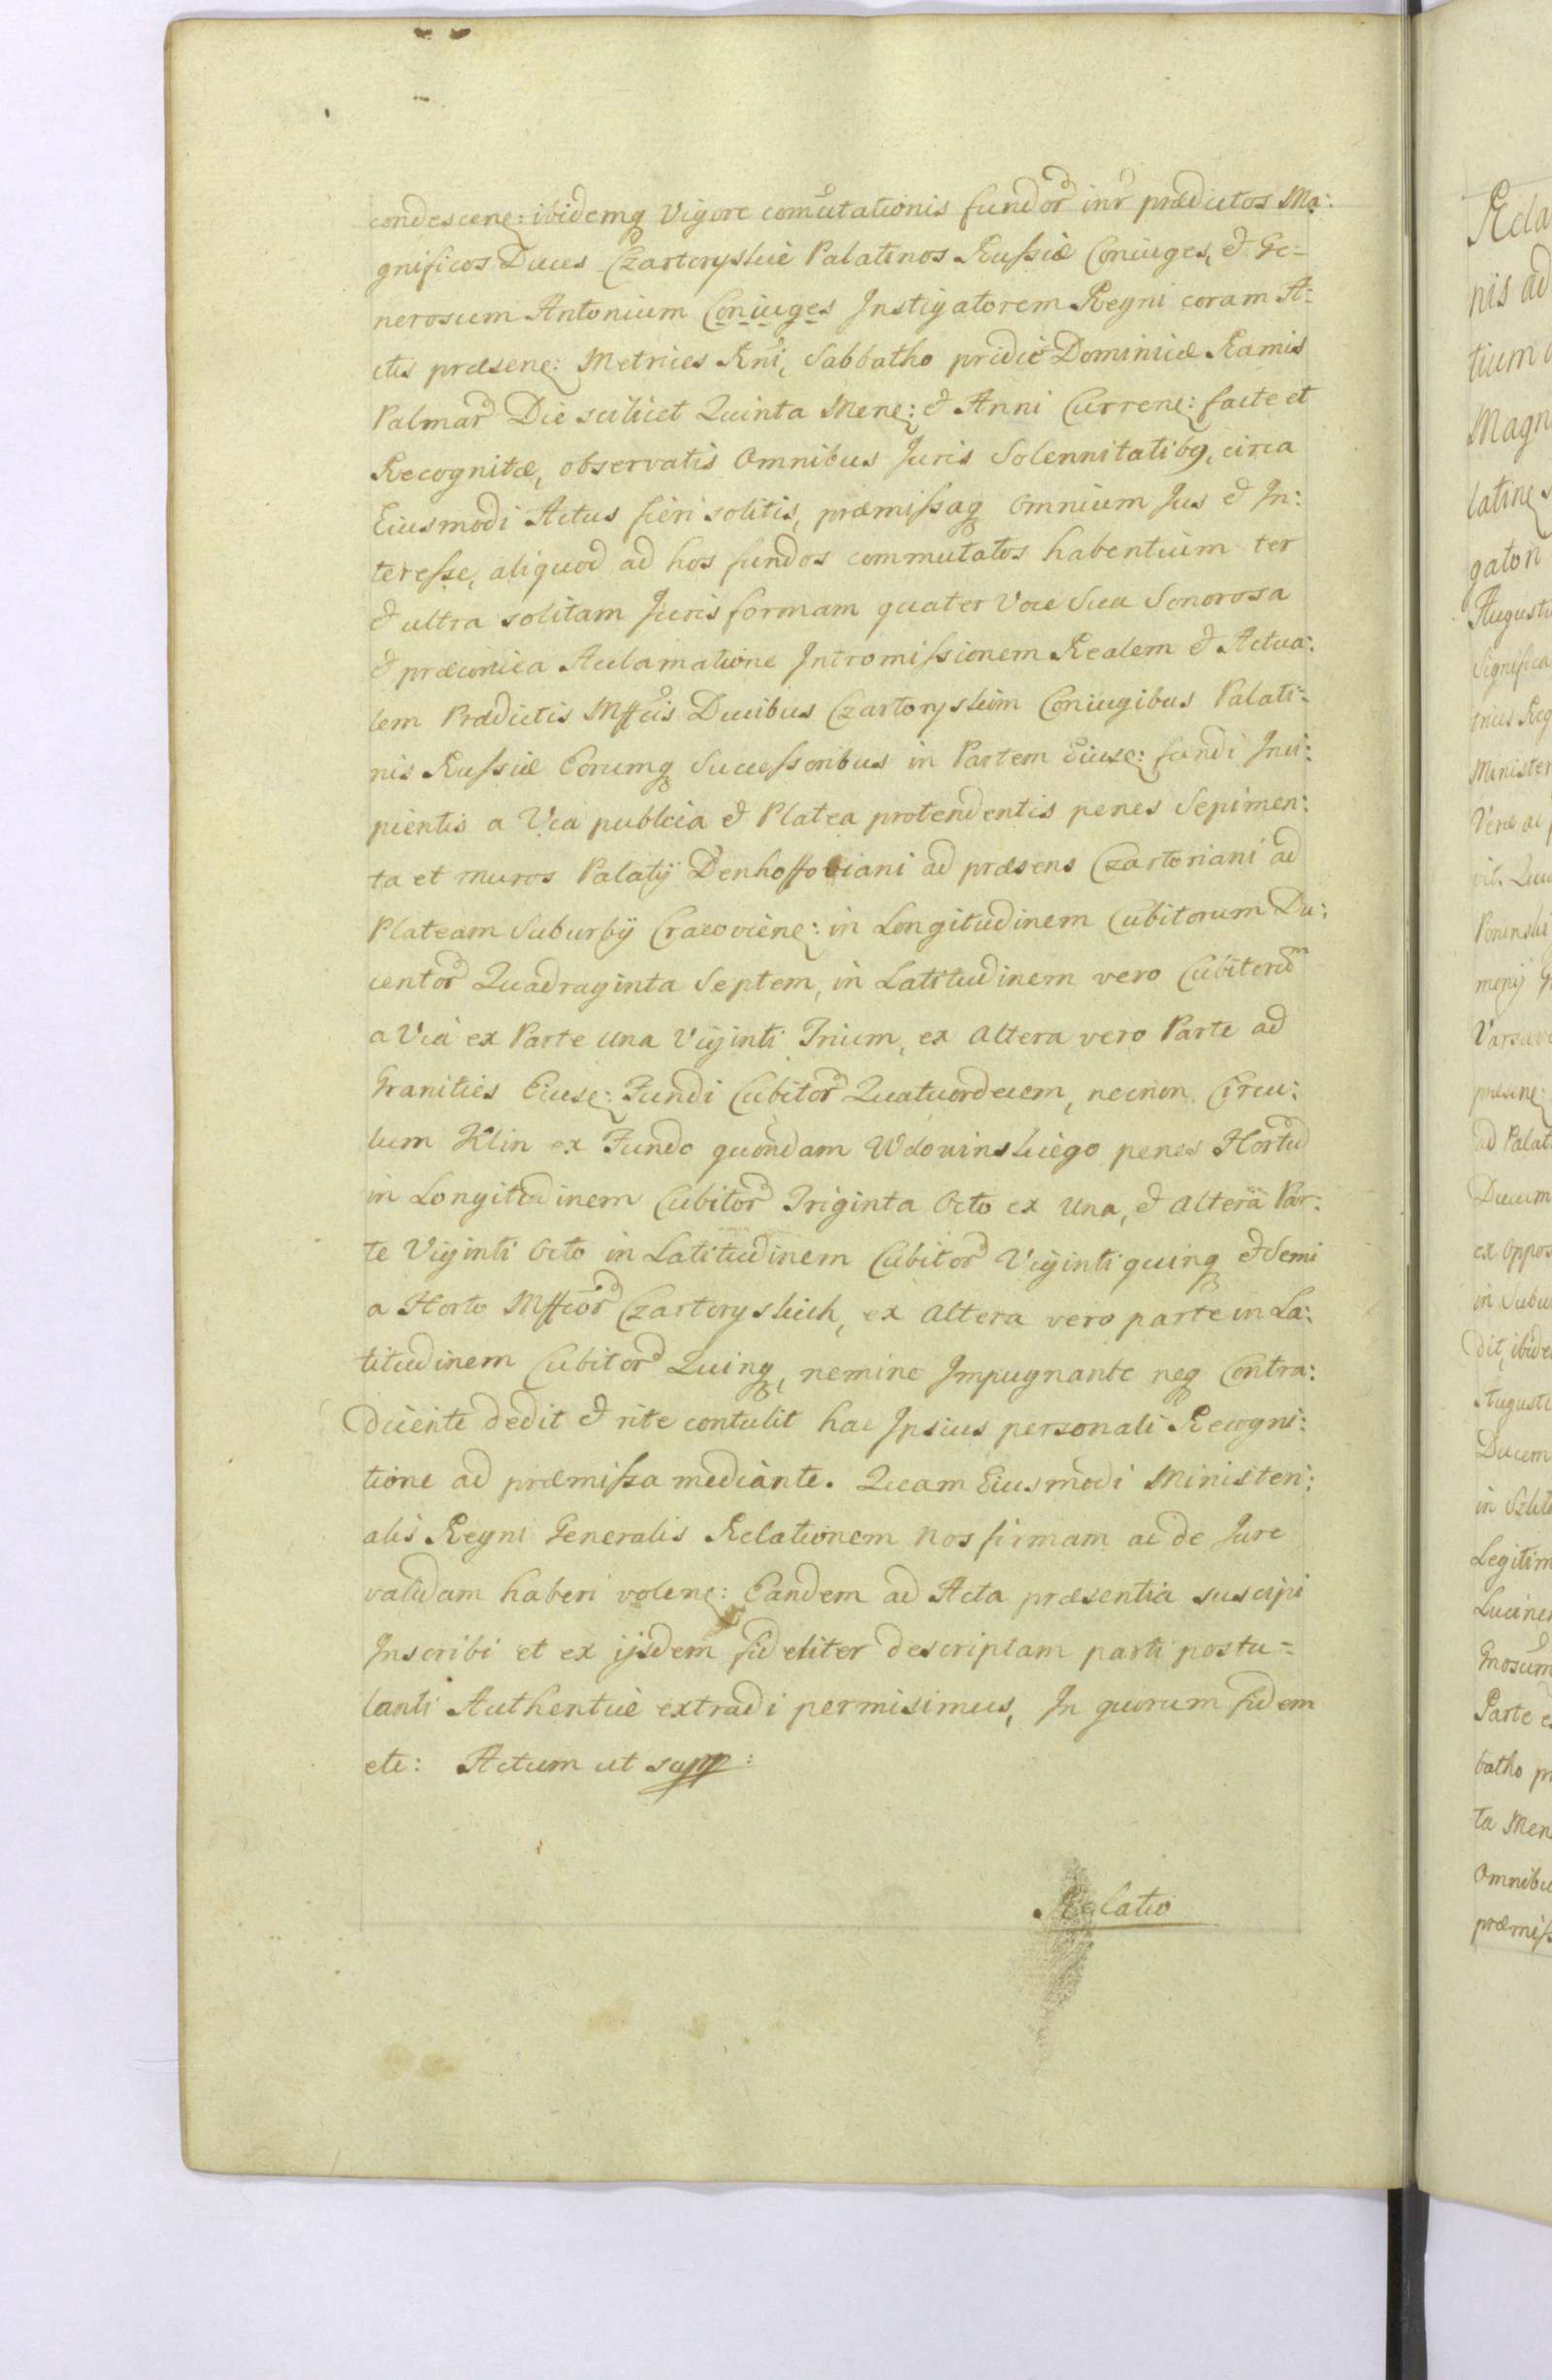 condescenẽ: ibidemq Vigore com̃utationis fundor̃ inr̃ prædictos Ma:
gnificos Duces Czartoryskie Palatinos Russiæ Coniuges, & Ge=
nerosum Antonium Coniuges Instigatorem Regni coram A=
ctis præsenẽ: Metrices Rñi, Sabbatho pridie Dominicæ Ramis
Palmar̃ Die scilicet Quinta Menẽ: & Anni Currenẽ: facte et
Recognitæ, observatis Omnibus Juris Solennitatibq, circa
Eiusmodi Actus fieri solitis, præmissaq Omnium Jus & In:
teresse, aliquod ad hos fundos commutatos habentium ter
& ultra solitam Juris formam quater Voce Sua Sonorosa
& præconica Aclamatione Intromissionem Realem & Actua:
lem Prædictis Mffcis Ducibus Czartoryskim Coniugibus Palati=
nis Russiæ Eorumq Successoribus in Partem Eiusẽ: fundi Inci:
pientis a Via publica & Platea protendentis penes Sepimen:
ta et muros Palatij Denhoffoviani ad præsens Czartoriani ad
Plateam Suburbij Cracovienẽ: in Longitudinem Cubitorum Du:
centor̃ Quadraginta Septem, in Latitudinem vero Cubitorum
a Via ex Parte una Viginti Trium, ex altera vero Parte ad
Granities Eiusẽ: Fundi Cubitor̃ Quatuordecem, necnon Circu:
lum Klin ex Fundo quondam Wdowinskiego penes Hortũ
in Longitudinem Cubitor̃ Triginta Octo ex Una, & altera Par:
te Viginti Octo in Latitudinem Cubitor̃ Viginti quinq & Semi
a Horto Mffcor̃ Czartoryskich, ex altera vero parte in La:
titudinem Cubitor̃ Quinq, nemine Impugnante neq Contra:
dicente dedit & rite contulit hac Ipsius personali Recogni:
tione ad præmissa mediante. Quam Eiusmodi Ministeri:
alis Regni Generalis Relationem nos firmam ac de Jure
validam haberi volenẽ: Eandem ad Acta præsentia suscipi
Inscribi et ex ijsdem fideliter descriptam parti postu=
lanti Authentice extradi permisimus, In quorum fidem
etc: Actum ut supp:
Relatio
Rela
nis ad
tium
Magn
latine
gaton
Augusti
Significa
trices Reg
Minister
Veræ ac
vit. Qui
Poninski
monij
Varsavi
præsenẽ:
ad Palat
Ducum
ex Oppos
in Subu
dit, ibide
Augusti
Ducem
in
Legitim
Lucine
Gnosum
Parte e
batho pr
ta Men
Omnibu
præmiss